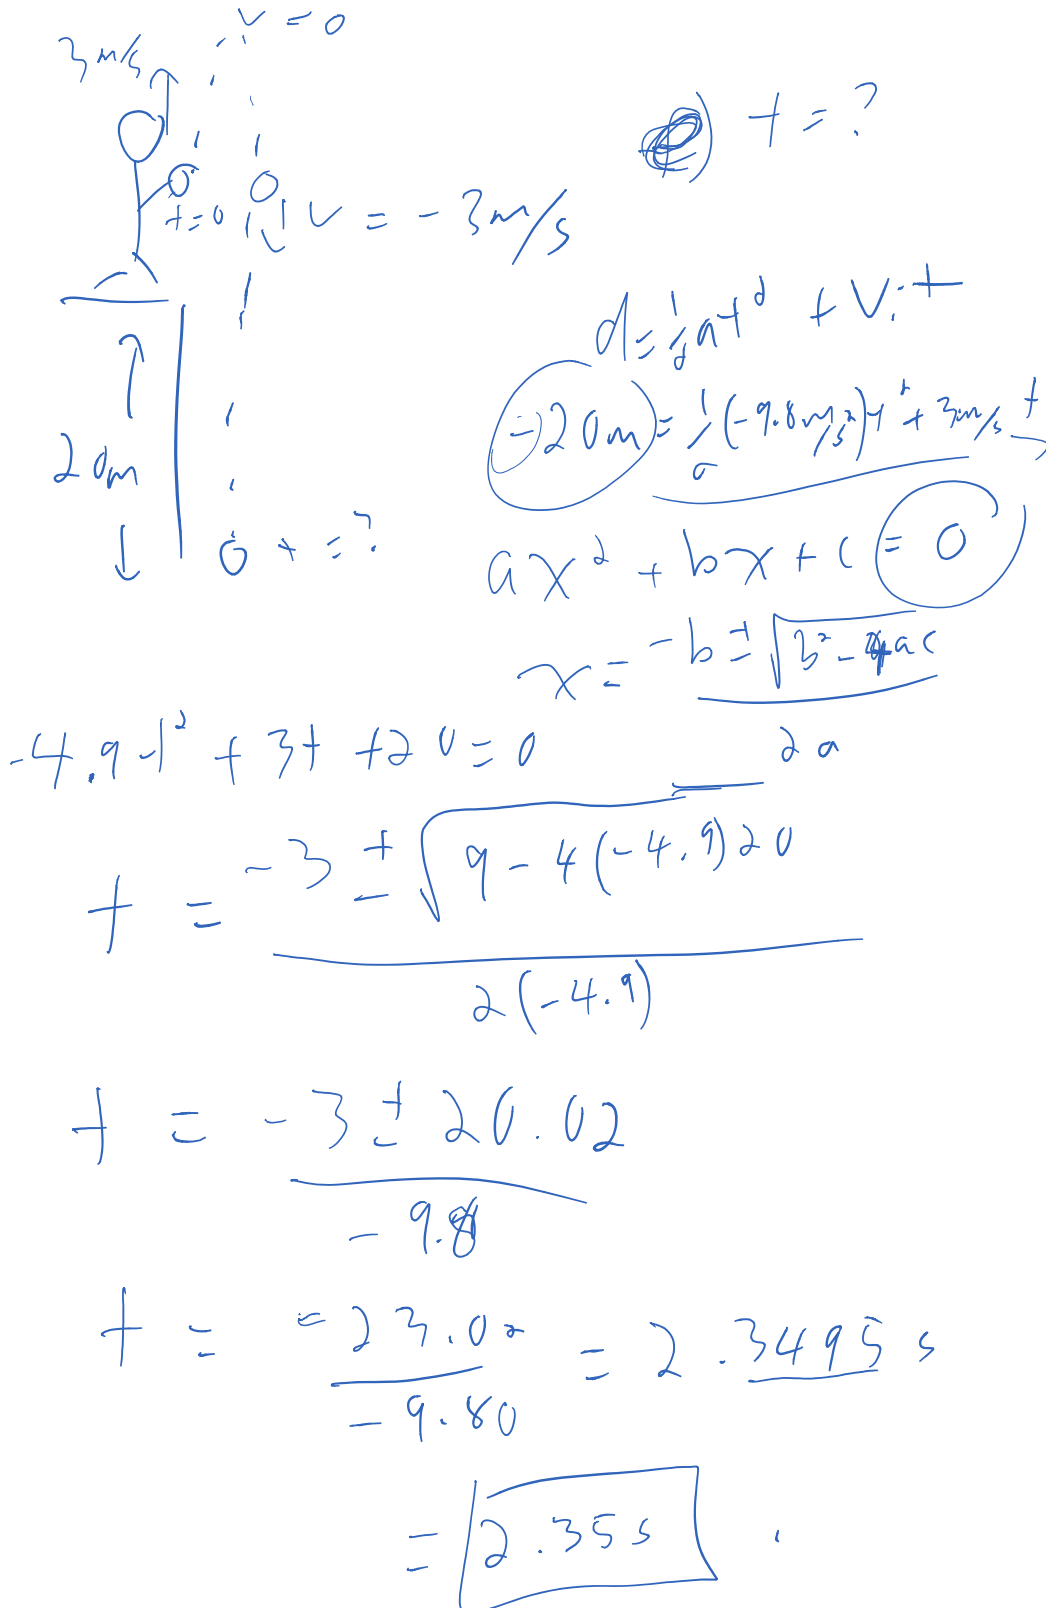 v = 0
3 m/s
t = ?
t = 0
v = - 3 m/s
d = 1/2 at² + Vi t
20 m
-20m = 1/2 (-9.8 m/s²) t² + 3 m/s t
t = ?
ax² + bx + c = 0
x = (-b ± √(b² - 4ac)) / 2a
-4.9t² + 3t + 20 = 0
t = (-3 ± √(9 - 4(-4.9)20)) / 2(-4.9)
t = (-3 ± 20.02) / -9.8
t = -23.02 / -9.80 = 2.3495 s
= 2.35 s